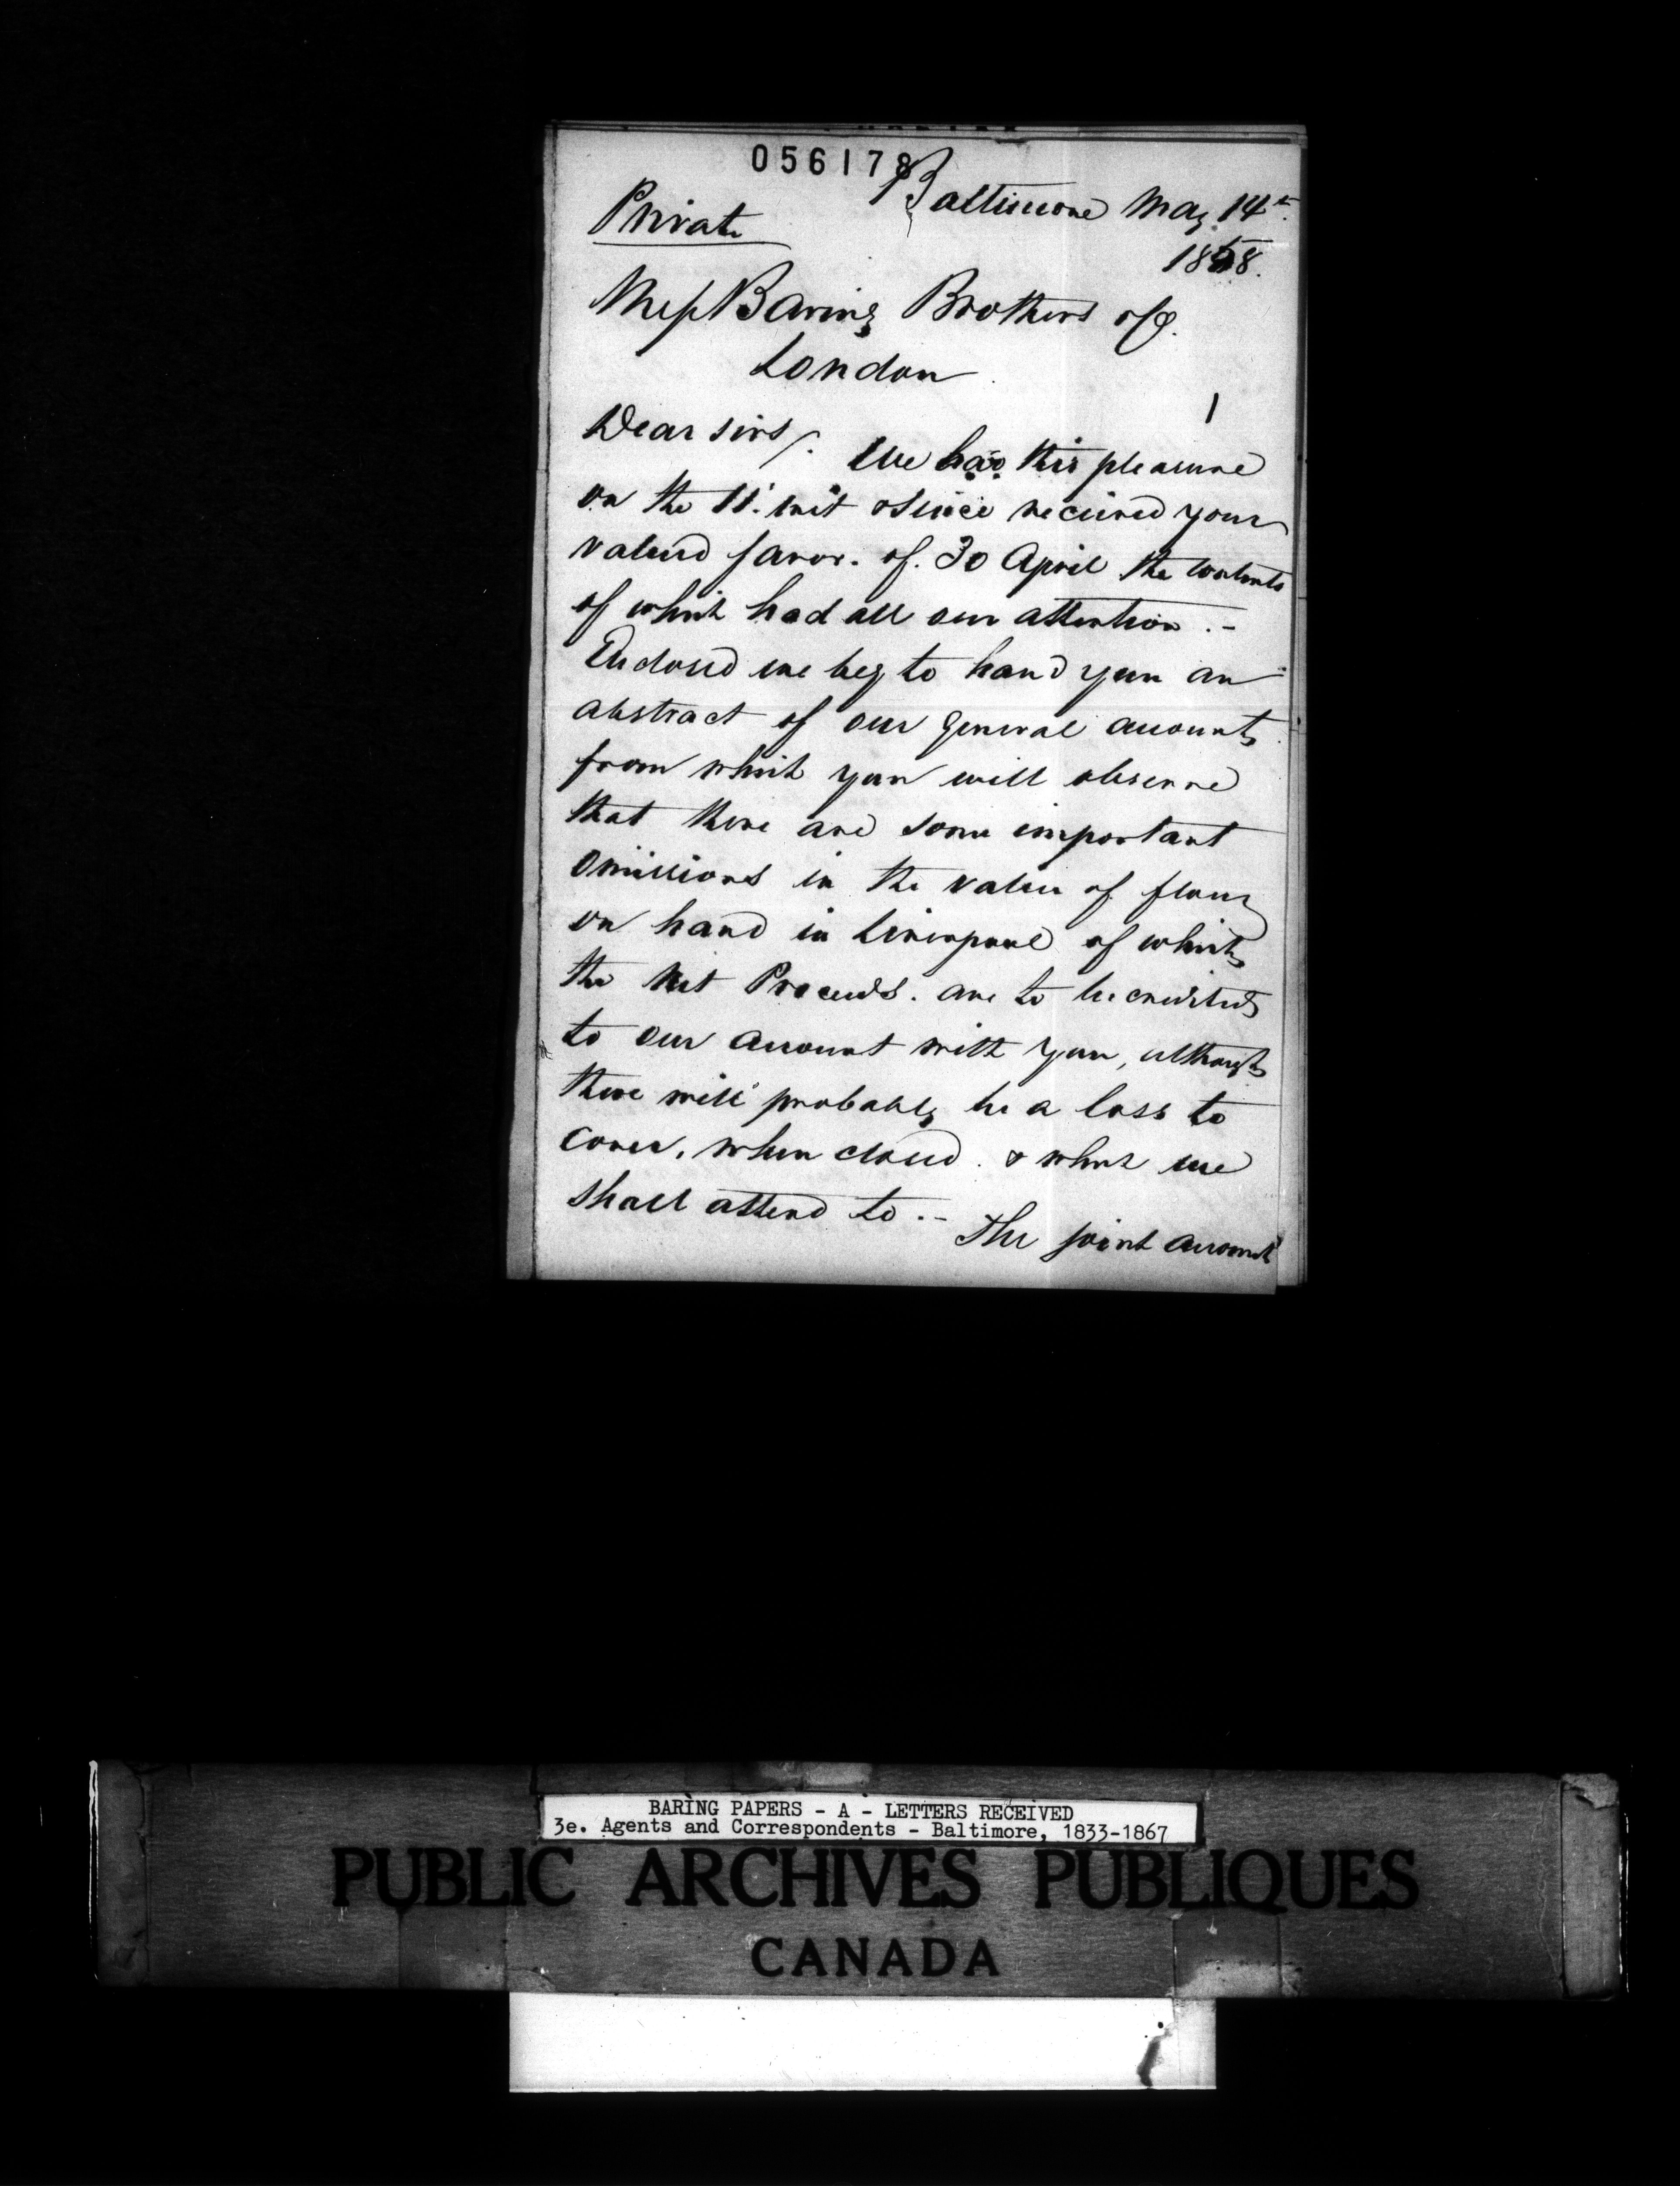 056178
Baltimore May 14th
Private
1858.
Mess Baring Brothers & Co.
London
1
Dear Sirs/.
We had this pleasure
on the 11. inst & since received your
valued favor. of. 30 April the contents
of which had all our attention. -
Enclosed we beg to hand you an
abstract of our General accounts
from which you will observe
that there are some important
omissions in the value of flour
on hand in Liverpool of which
the Net Proceeds. are to be credited
to our account with you, although
there will probably be a loss to
cover, when closed. & which we
shall attend to. -
The joint account
BARING PAPERS - A - LETTERS RECEIVED
3e. Agents and Correspondents - Baltimore, 1833-1867
PUBLIC ARCHIVES PUBLIQUES
CANADA